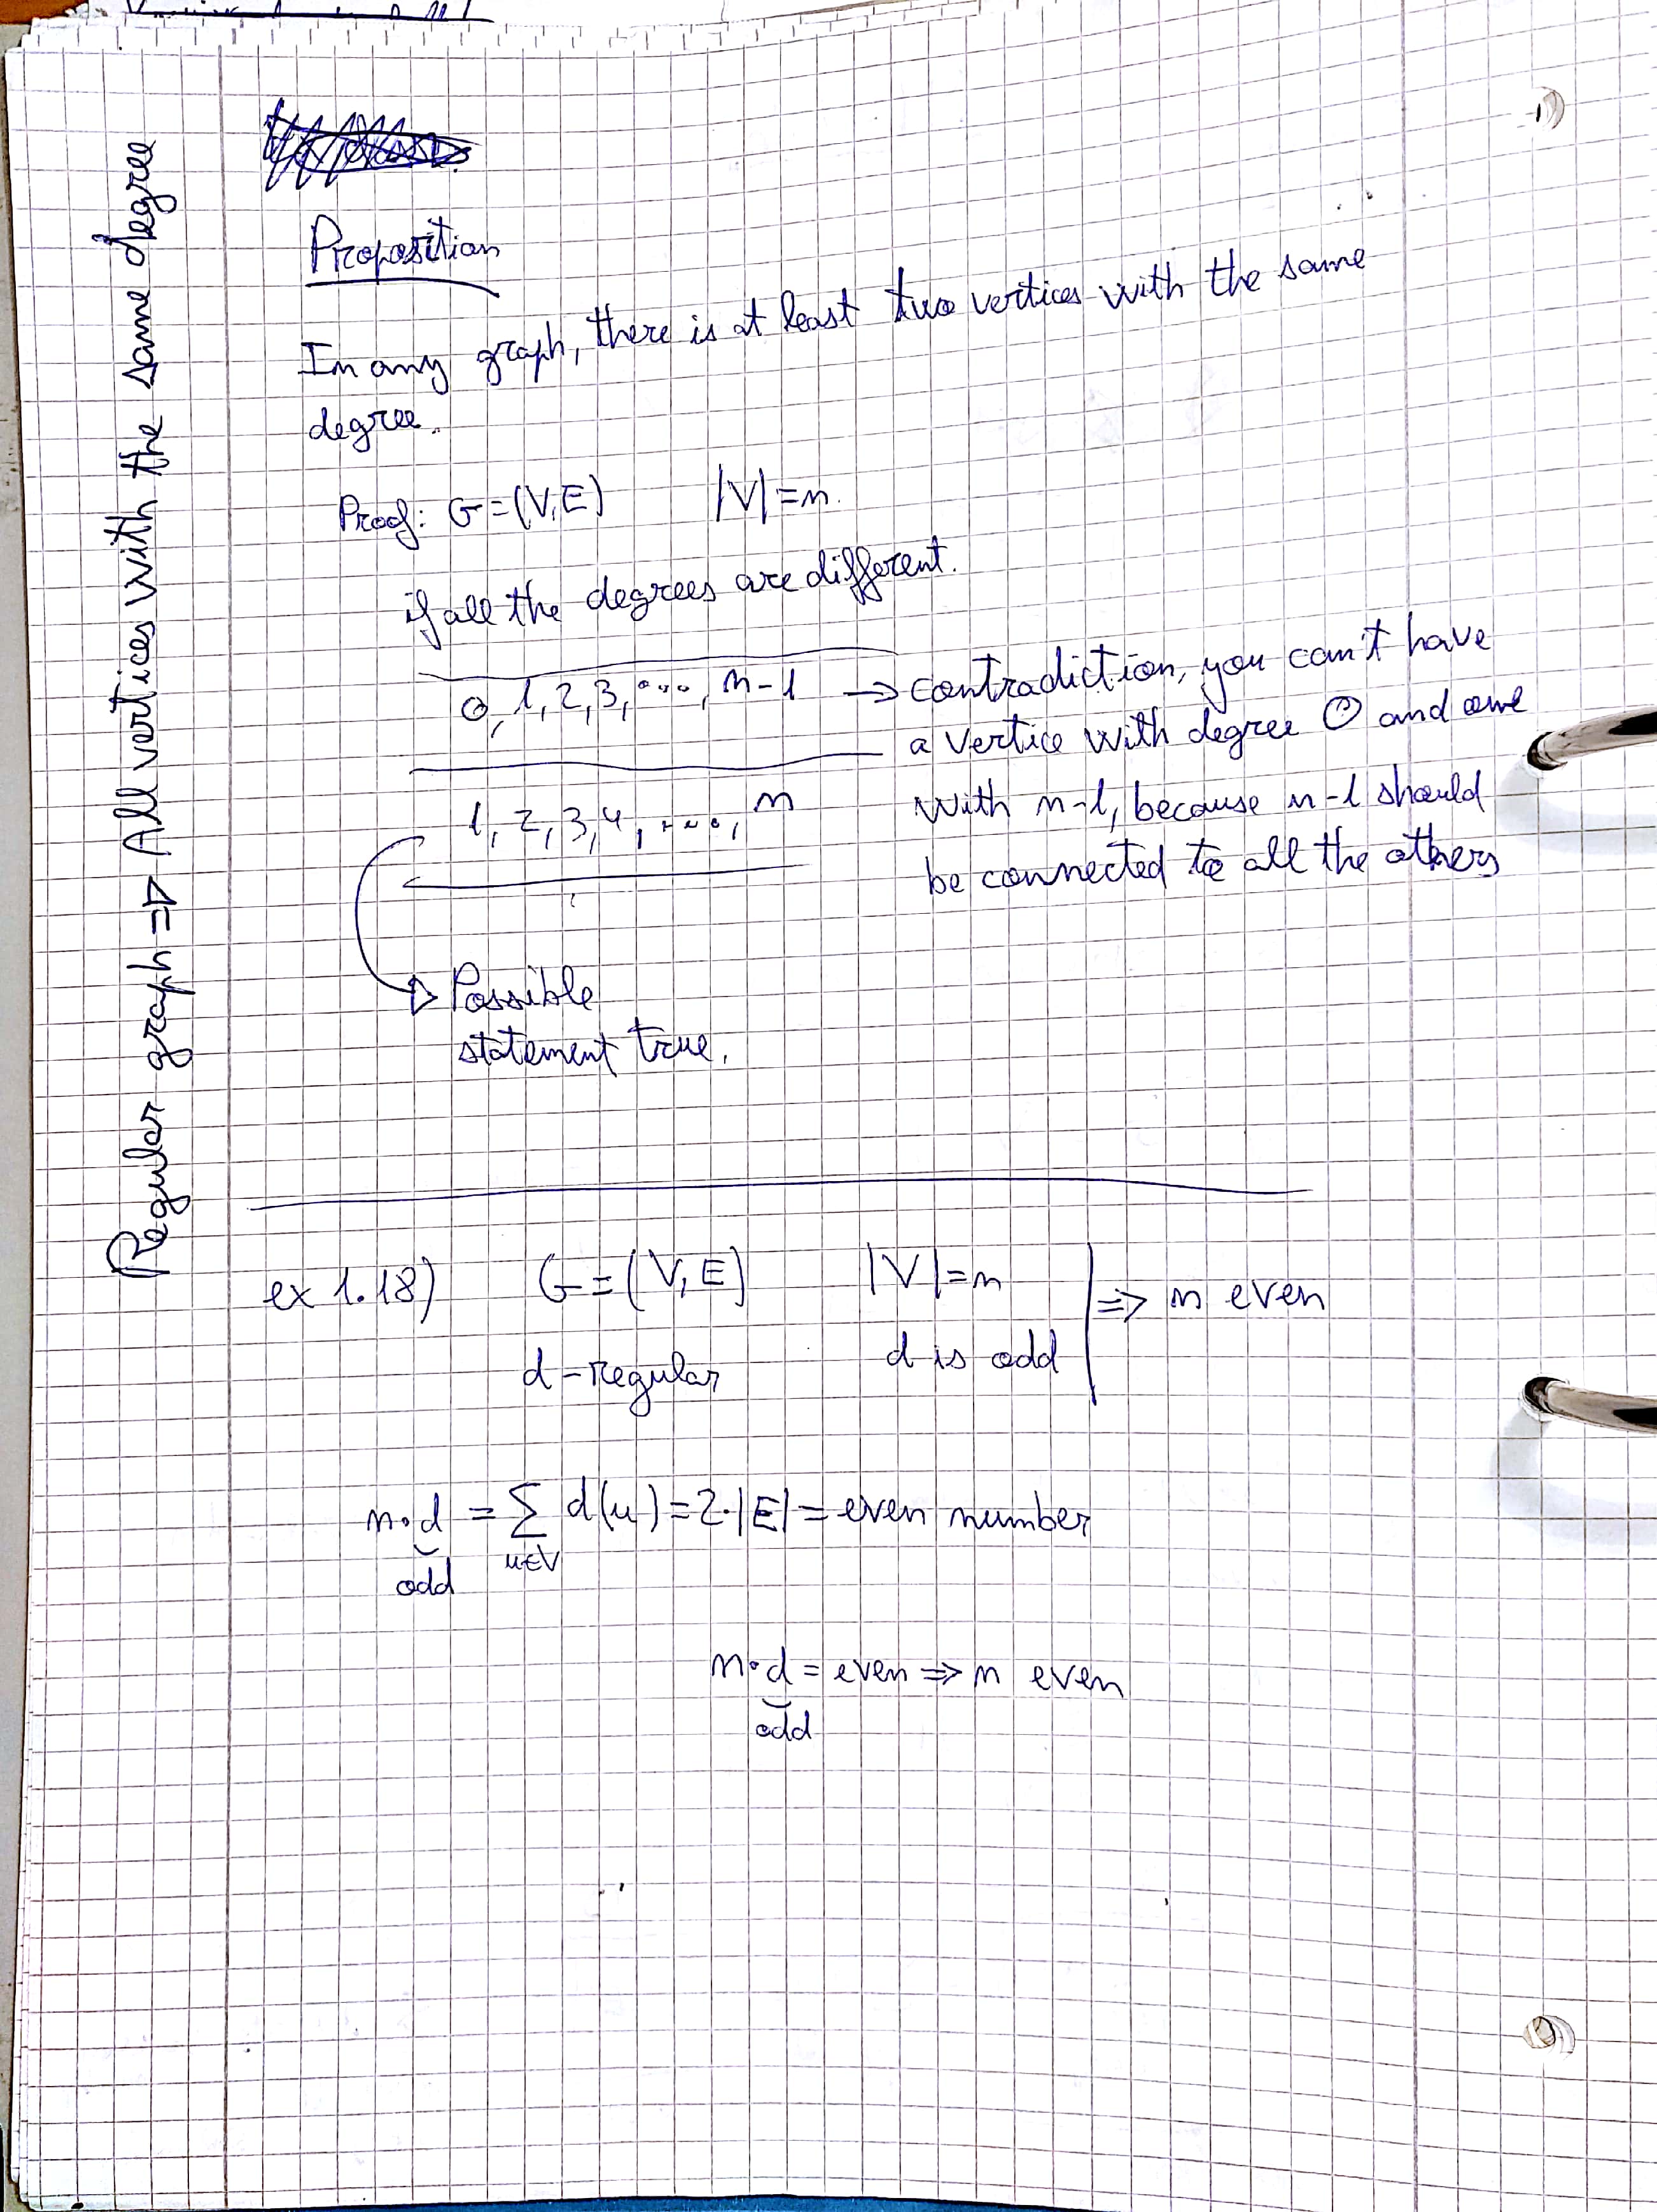 Regular graph => All vertices with the same degree
Proposition
In any graph, there is at least two vertices with the same
degree.
Proof: G=(V,E) |V|=n.
if all the degrees are different.
0, 1, 2, 3, ...., n-1 → contradiction, you can't have
a vertice with degree 0 and one
with n-1, because n-1 should
be connected to all the others
1, 2, 3, 4, ...., n
Possible
statement true.
ex 1.18) G=(V,E) |V|=n => n even
d-regular d is odd
n·d = ∑ d(u) = 2·|E| = even number
odd u∈V
n·d = even => n even
odd